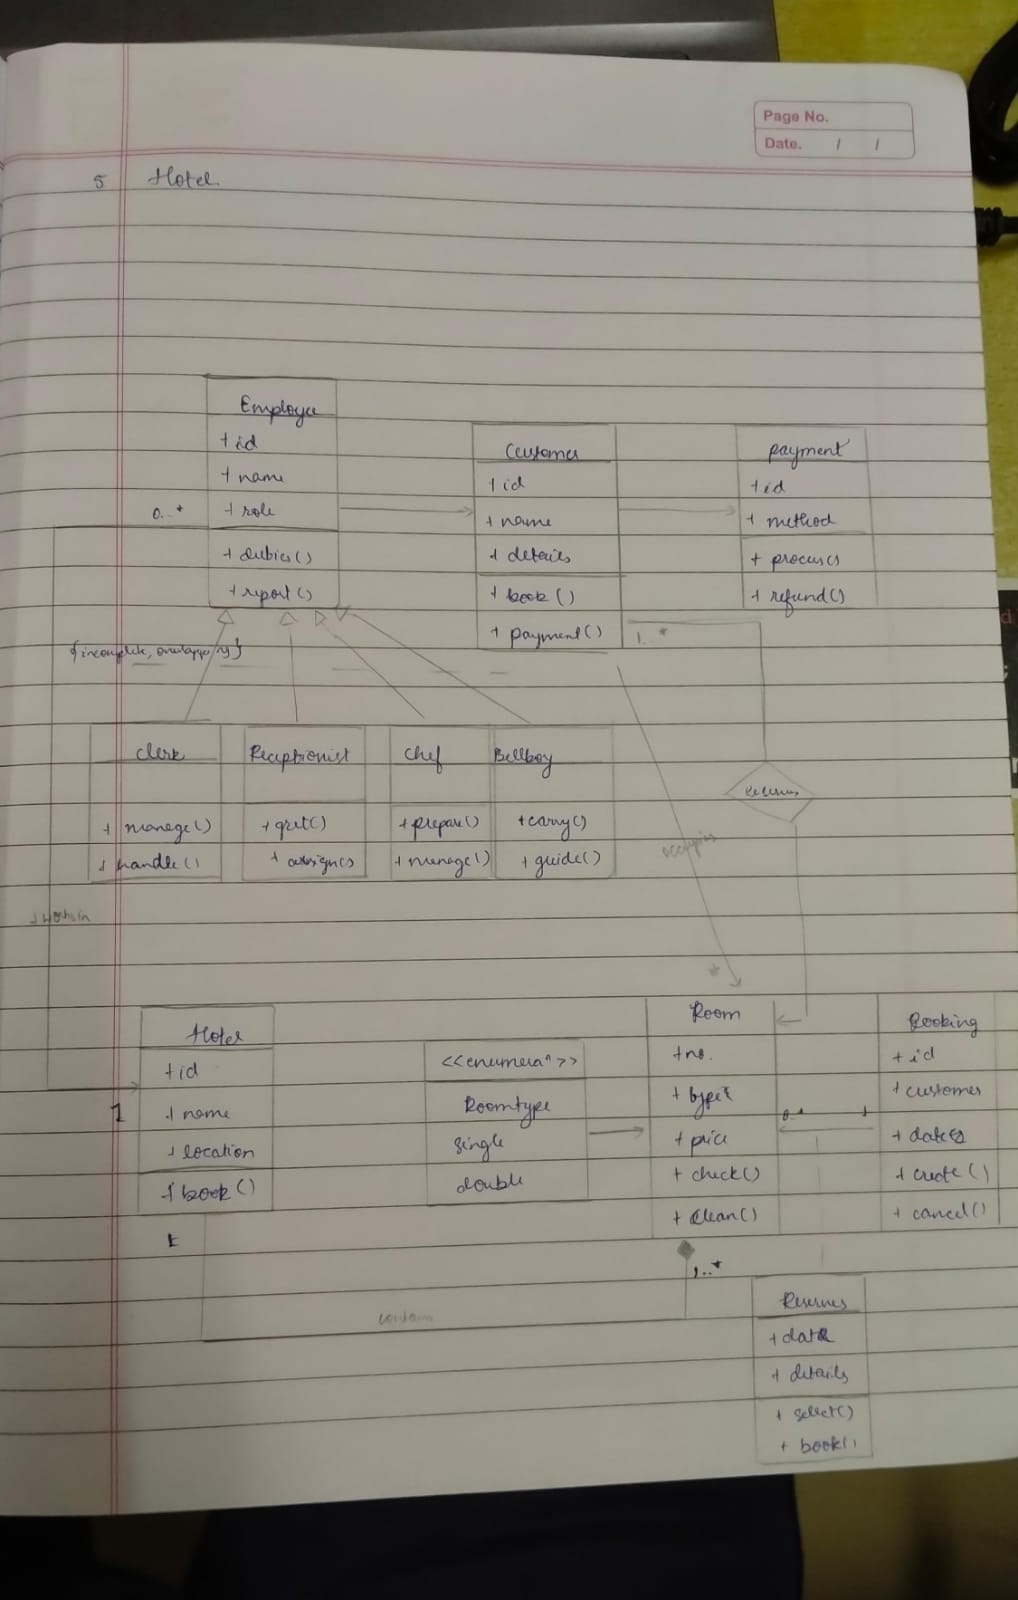 Page No.
Date. / /
5 Hotel
Employee
+ id
+ name
0..* + role
+ duties()
+ report()
Customer
+ id
+ name
+ details
+ book()
+ payment()
1..*
payment
+ id
+ method
+ process()
+ refund()
{incomplete, overlapping}
Clerk
+ manage()
+ handle()
Receptionist
+ gret()
+ assign()
Chef
+ prepare()
+ manage()
Bellboy
+ carry()
+ guide()
occupies
*
Hotel
+ id
1 + name
+ location
+ book()
<<enumeraⁿ>>
Roomtype
single
double
Room
+ no.
+ price
+ check()
+ clean()
1..*
Booking
+ id
+ customer
+ create()
+ cancel()
contains
Reserves
+ details
+ select()
+ book()